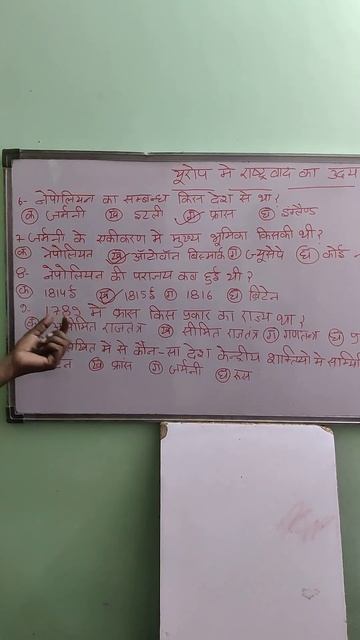 यूरोप मे राष्ट्रवाद का उदय
6- नेपोलियन का सम्बन्ध किस देश से था?
क जर्मनी ख इटली ग फ्रांस घ इंग्लैण्ड
7- जर्मनी के एकीकरण मे मुख्य भूमिका किसकी थी?
क नेपोलियन ख ऑटोवॉन बिस्मार्क ग ज्युसेपे घ कोई
8- नेपोलियन की पराजय कब हुई थी?
क 1814 ई ख 1815 ई ग 1816 घ ब्रिटेन
9. 1789 में फ्रांस किस प्रकार का राज्य था?
राजतंत्र ख सीमित राजतंत्र ग गणतन्त्र घ
में से कौन-सा देश केन्द्रीय शक्तियो मे
ख फ्रांस ग जर्मनी घ रूस